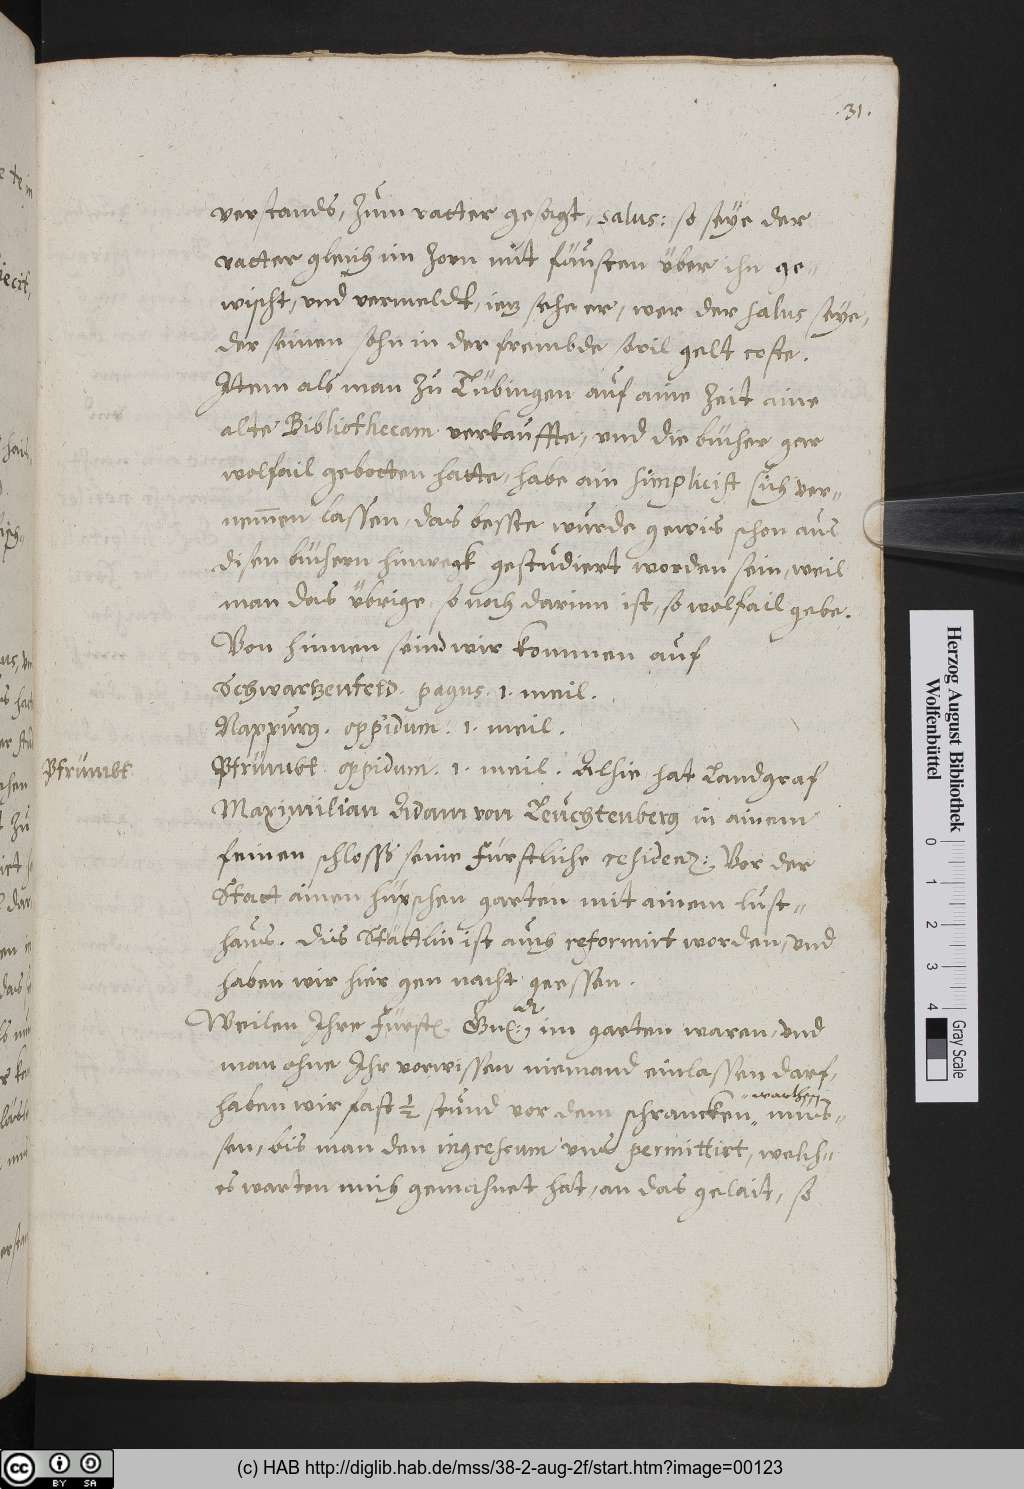 .31.
verstands, zum vatter gesagt, salus: so seÿe der
vatter gleich im zorn mit feüsten über ihn ge-
wischt, und vermeldt, iez sehe er, wer der salus seÿe,
der seinen sohn in der frembde sovil gelt coste.
Item als man zu Tübingen auf aine zeit aine
alte Bibliothecam verkauffte, und die bücher gar
wolfail gebotten hatte, habe ain simplicist sich ver-
nem̄en lassen, das besste würde gewis schon aus
disen büchern hinwegk gestudiert worden sein, weil
man das übrige, so noch darinn ist, so wolfail gebe.
Von hinnen seind wir kommen auf
Schwartzenfeld. pagus. 1. meil.
Nappurg. oppidum. 1. meil.
Pfrümbt
Pfrümbt. oppidum. 1. meil. Alhie hat Landgraf
Maximilian Adam von Leüchtenberg in ainem
feinen schloss seine Fürstliche residenz: Vor der
Statt ainen hüpschen garten mit ainem lust-
haus. Dis Stättlin ist auch reformirt worden, und
haben wir hier gen nacht geessen.
Weilen Ihre Fürstl. Gn: im garten waren, und
man ohne Ihr vorwissen niemand einlassen darf,
haben wir fast ½ stund vor dem schrancken warthen müs-
sen, bis man den ingressum uns permittirt, welch-
es warten mich gemahnet hat, an das gelait, so
Herzog August Bibliothek
Wolfenbüttel
0 1 2 3 4
Gray Scale
cc BY SA
(c) HAB http://diglib.hab.de/mss/38-2-aug-2f/start.htm?image=00123